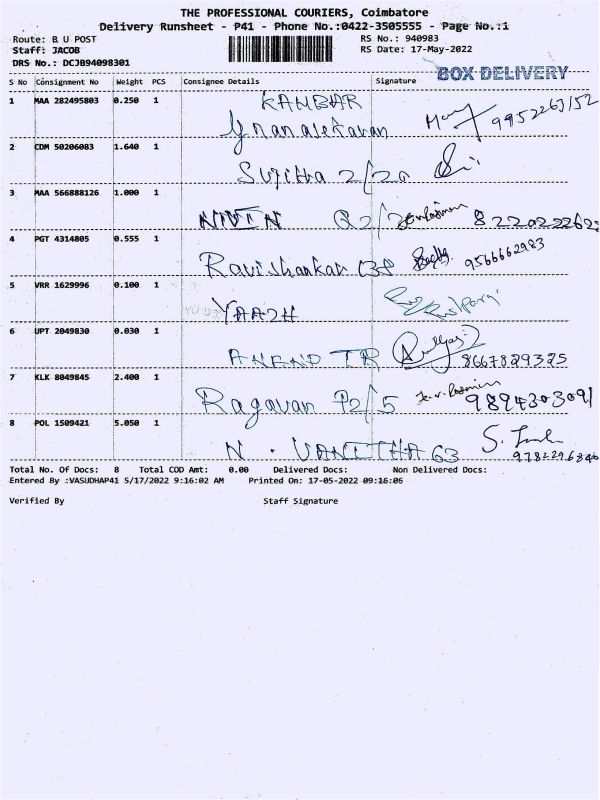 THE PROFESSIONAL COURIERS, Coimbatore
Delivery Runsheet - P41 - Phone No.:0422-3505555 - Page No.:1
Route: B U POST
RS No.: 940983
Staff: JACOB
RS Date: 17-May-2022
DRS No.: DCJB94098301
BOX DELIVERY
S No Consignment No Weight PCS Consignee Details Signature
1 MAA 282495803 0.250 1 KAMBAR
Gnanasekaran 9952263152
2 CDM 50206083 1.640 1
Sujitha 2/20
3 MAA 566888126 1.000 1
NIVIN
4 PGT 4314805 0.555 1
Ravishankar 138 9566662983
5 VRR 1629996 0.100 1
YAASH
6 UPT 2049830 0.030 1
ANAND TR 8667829325
7 KLK 8049845 2.400 1
Ragavan P2/5 9894303091
8 POL 1509421 5.050 1
N. VANITHA 63
Total No. Of Docs: 8 Total COD Amt: 0.00 Delivered Docs: Non Delivered Docs:
Entered By :VASUDHAP41 5/17/2022 9:16:02 AM Printed On: 17-05-2022 09:16:06
Verified By Staff Signature